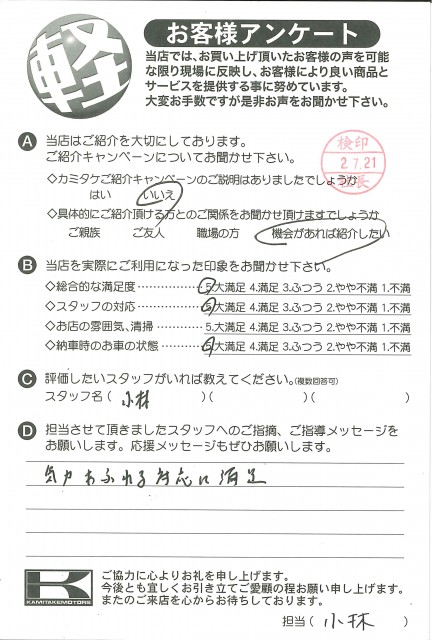 軽
お客様アンケート
当店では、お買い上げ頂いたお客様の声を可能
な限り現場に反映し、お客様により良い商品と
サービスを提供する事に努めています。
大変お手数ですが是非お声をお聞かせ下さい。
A 当店はご紹介を大切にしております。
ご紹介キャンペーンについてお聞かせ下さい。
検印
2.7.21
長
◇カミタケご紹介キャンペーンのご説明はありましたでしょうか
はい いいえ
◇具体的にご紹介頂ける方とのご関係をお聞かせ頂けますでしょうか
ご親族 ご友人 職場の方 機会があれば紹介したい
B 当店を実際にご利用になった印象をお聞かせ下さい。
◇総合的な満足度 5.大満足 4.満足 3.ふつう 2.やや不満 1.不満
◇スタッフの対応 5.大満足 4.満足 3.ふつう 2.やや不満 1.不満
◇お店の雰囲気、清掃 5.大満足 4.満足 3.ふつう 2.やや不満 1.不満
◇納車時のお車の状態 5.大満足 4.満足 3.ふつう 2.やや不満 1.不満
C 評価したいスタッフがいれば教えてください。(複数回答可)
スタッフ名 ( 小林 )( )( )
D 担当させて頂きましたスタッフへのご指摘、ご指導メッセージを
お願いします。応援メッセージもぜひお願いします。
気力あふれる対応に満足
K
KAMITAKEMOTORS
ご協力に心よりお礼を申し上げます。
今後とも宜しくお引き立てご愛顧の程お願い申し上げます。
またのご来店を心からお待ちしております。
担当 ( 小林 )